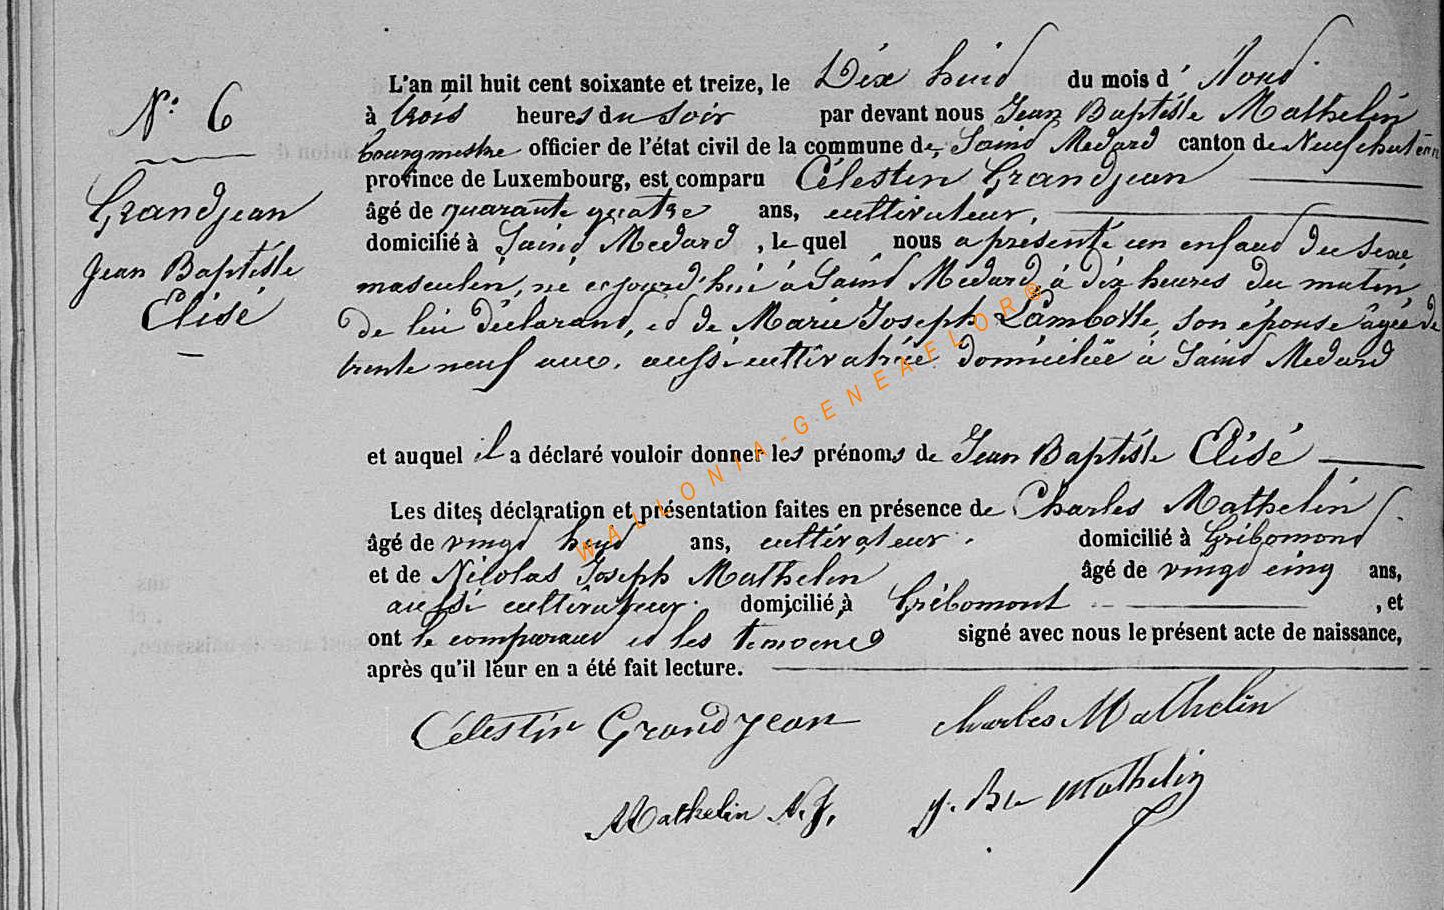 N° 6
Grandjean
Jean Baptiste
Elisé
L'an mil huit cent soixante et treize, le Dix huit du mois d' Aout
à trois heures du soir par devant nous Jean Baptiste Mathelin
bourgmestre officier de l'état civil de la commune de Saint Medard canton de Neufchateau
province de Luxembourg, est comparu Célestin Grandjean
âgé de quarante quatre ans, cultivateur,
domicilié à Saint Medard, le quel nous a présenté un enfant du sexe
masculin, né ce jourd'hui à Saint Médard, à dix heures du matin,
de lui déclarant, et de Marie Joseph Lambotte, son épouse âgée de
trente neuf ans, aussi cultivatrice domiciliée à Saint Medard
et auquel il a déclaré vouloir donner les prénoms de Jean Baptiste Elisé
Les dites déclaration et présentation faites en présence de Charles Mathelin
âgé de vingt huit ans, cultivateur domicilié à Gribomont
et de Nicolas Joseph Mathelin âgé de vingt cinq ans,
aussi cultivateur domicilié à Gribomont, et
ont le comparant et les temoins signé avec nous le présent acte de naissance,
après qu'il leur en a été fait lecture.
Célestin Grandjean Charles Mathelin
Mathelin N. J. J. Bte Mathelin
WALLONIA-GENEAFLOR®